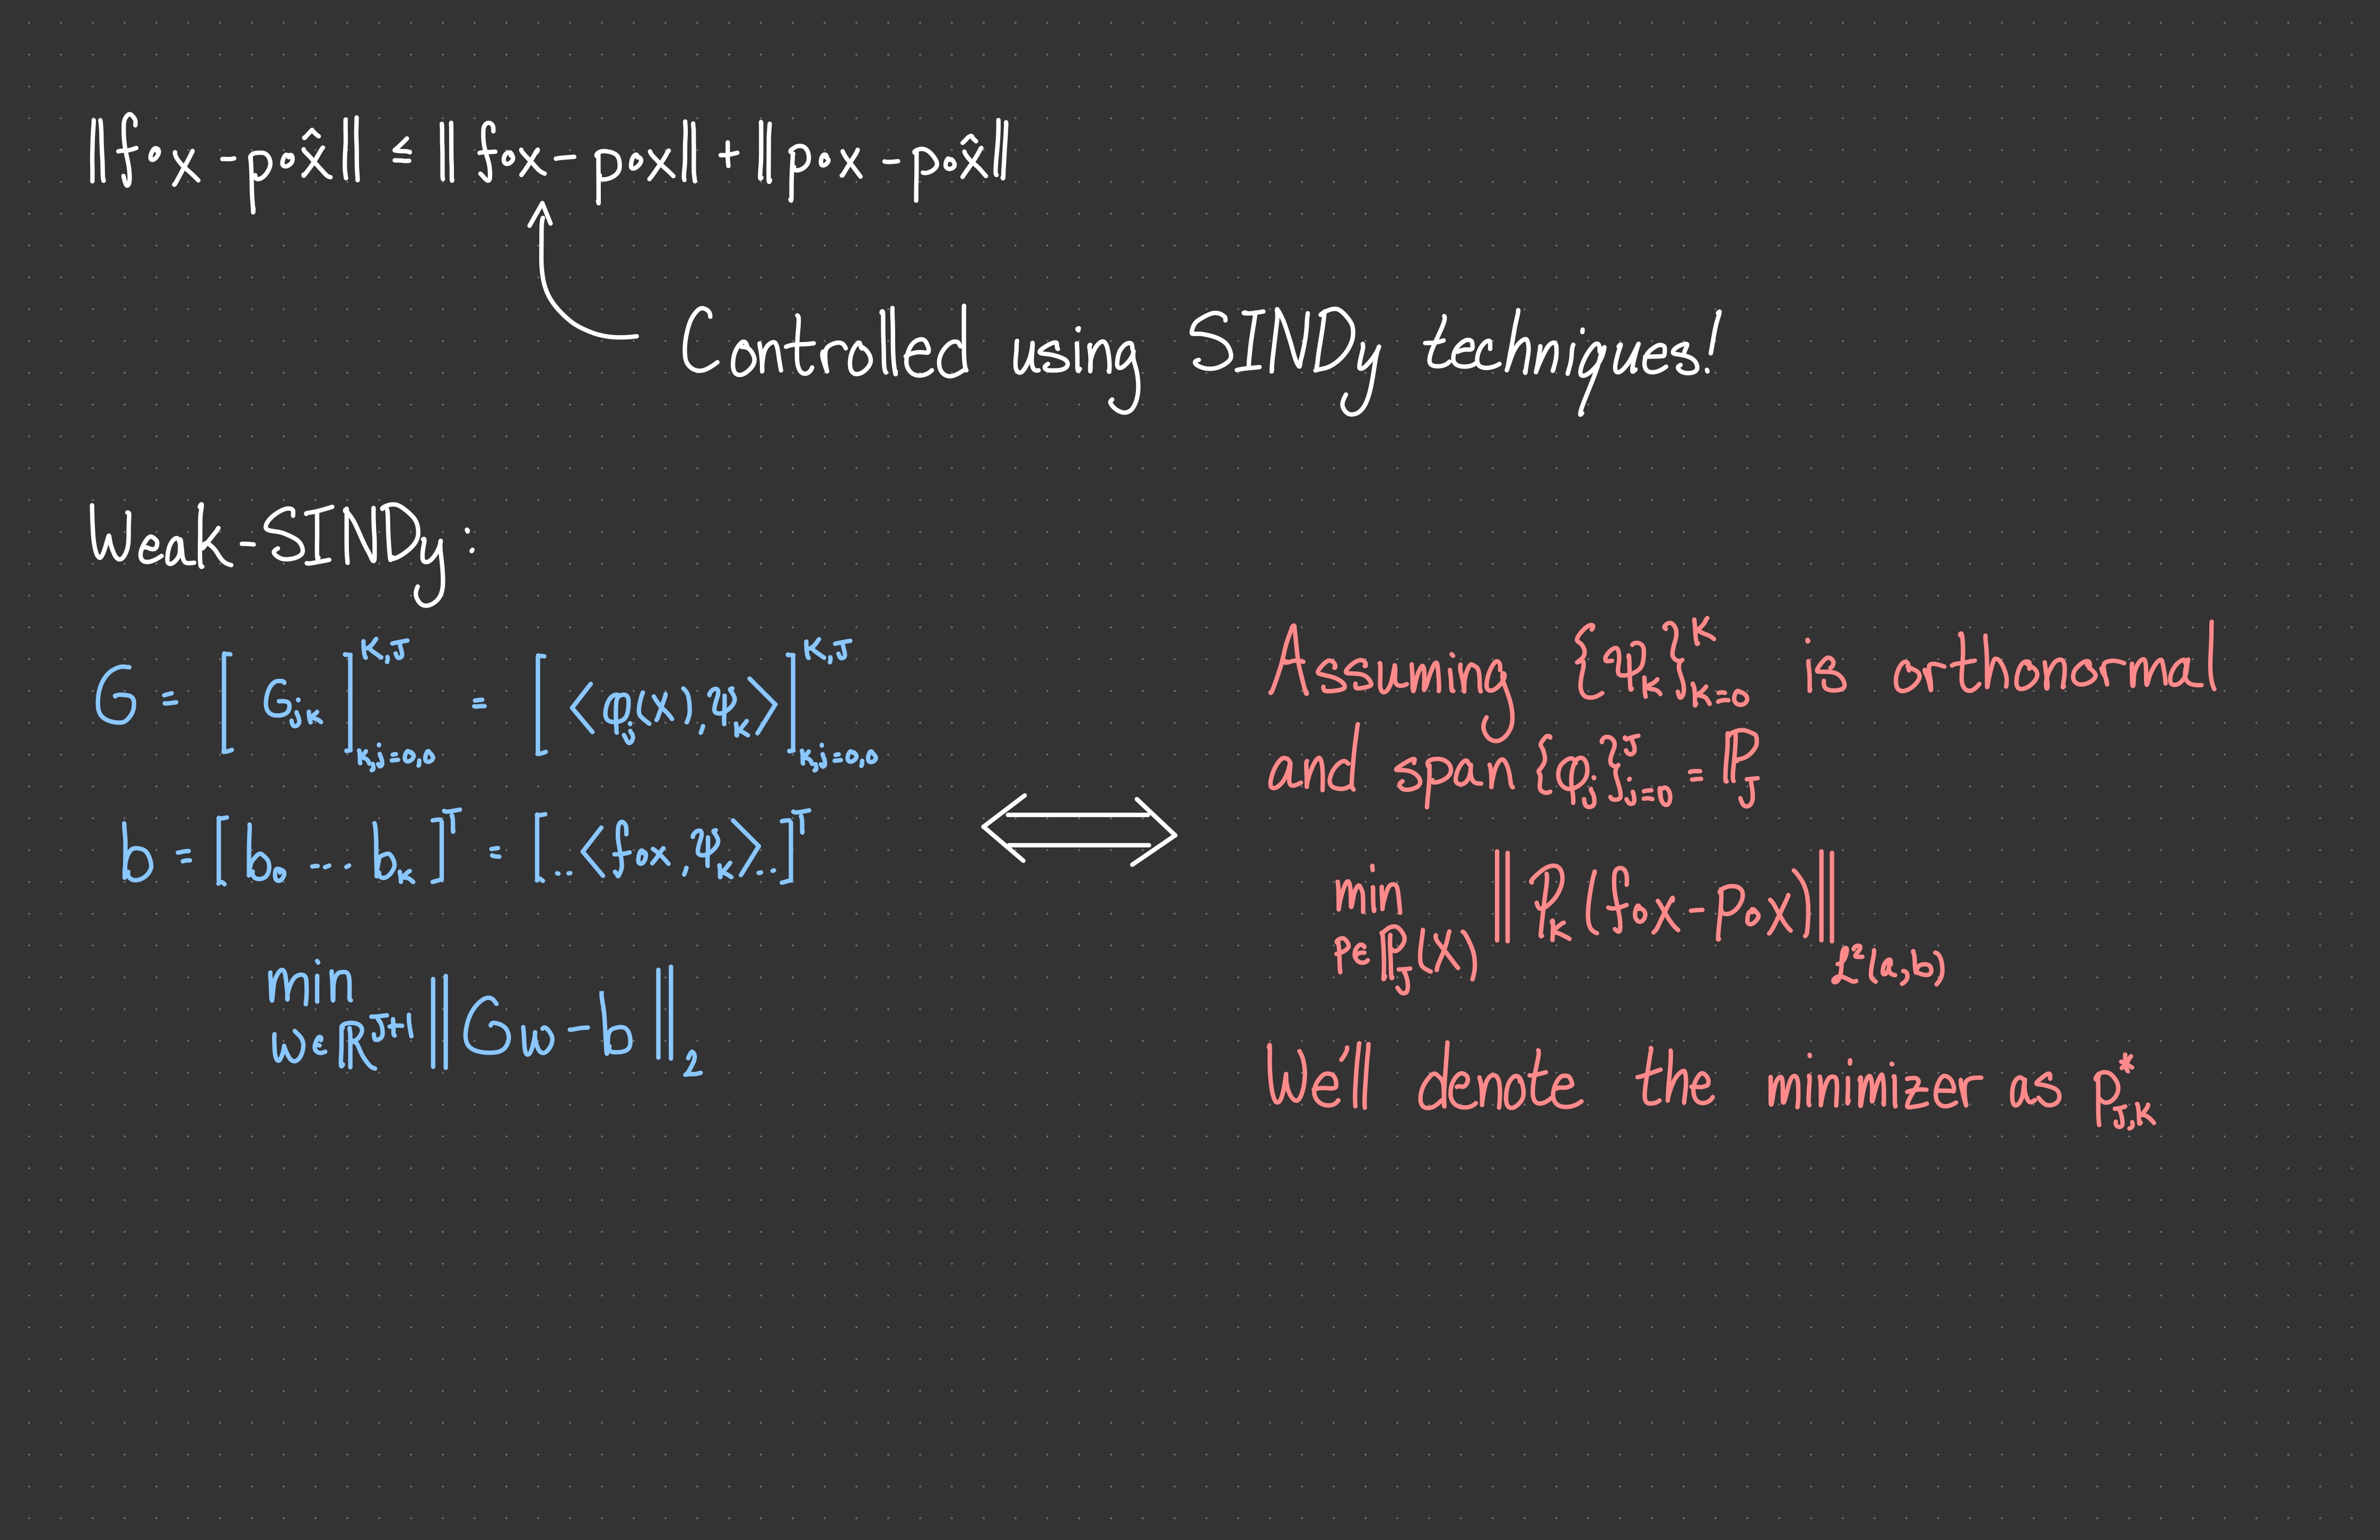 ‖f∘x − p∘x̂‖ ≤ ‖f∘x − p∘x‖ + ‖p∘x − p∘x̂‖
Controlled using SINDy techniques!
Weak-SINDy:
G = [G_{jk}]_{k,j=0,0}^{K,J} = [⟨φ_j(x), ψ_k⟩]_{k,j=0,0}^{K,J}
b = [b_0 ... b_K]^T = [..⟨f∘x, ψ_k⟩..]^T
min_{w∈ℝ^{J+1}} ‖Gw − b‖_2
Assuming {ψ_k}_{k=0}^K is orthonormal
and span {φ_j}_{j=0}^J = ℙ_J
min_{p∈ℙ_J(X)} ‖P_K(f∘x − p∘x)‖_{L²(a,b)}
We'll denote the minimizer as p*_{J,K}